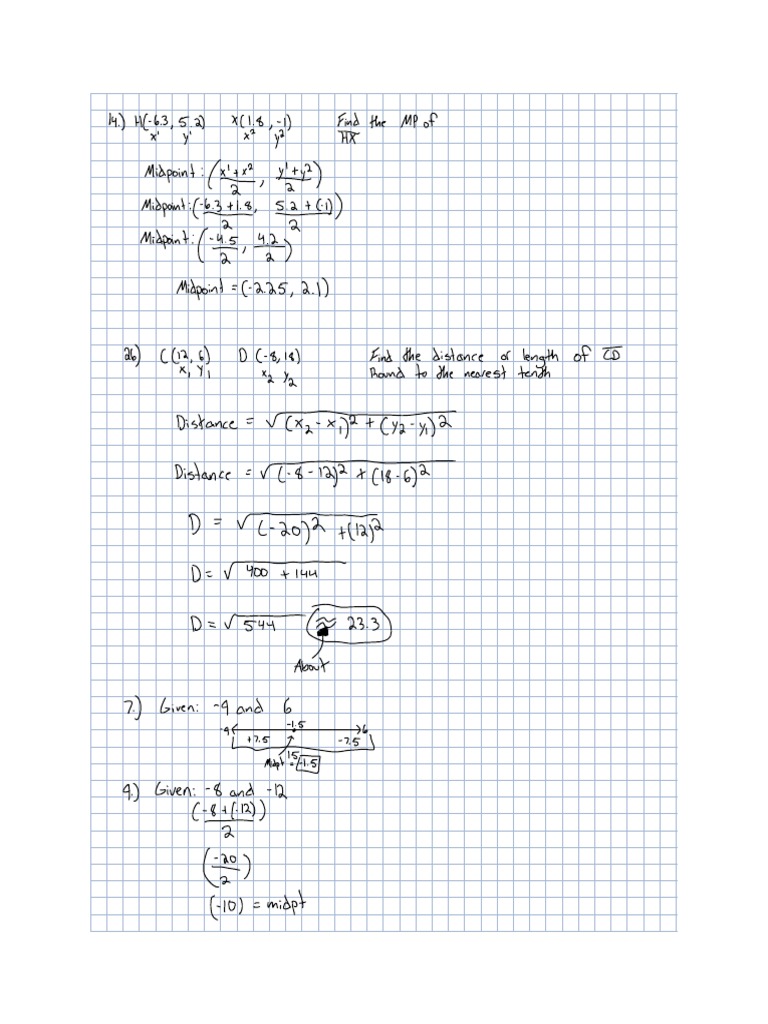 14.) H(-6.3, 5.2) X(1.8, -1) Find the MP of
x¹ y¹ x² y² HX
Midpoint: (x¹+x²/2, y¹+y²/2)
Midpoint: (-6.3+1.8/2, 5.2+(-1)/2)
Midpoint: (-4.5/2, 4.2/2)
Midpoint = (-2.25, 2.1)
26) C(12, 6) D (-8, 18) Find the distance or length of CD
x₁ y₁ x₂ y₂ Round to the nearest tenth
Distance = √(x₂-x₁)² + (y₂-y₁)²
Distance = √(-8-12)² + (18-6)²
D = √(-20)² + (12)²
D = √400 + 144
D = √544 ≈ 23.3
About
7.) Given: -9 and 6
-1.5
-9 6
+7.5 -7.5
15
Midpt = -1.5
9.) Given: -8 and -12
(-8+(-12))/2
(-20/2)
(-10) = midpt